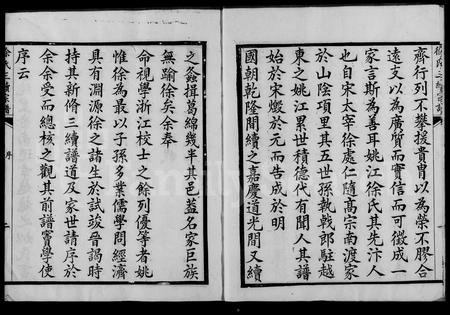 齊行列不攀援貴胄以為榮不膠合
遠支以為廣質而實信而可徵成一
家言斯為善耳姚江徐氏其先汴人
也自宋太宰徐處仁隨高宗南渡家
於山陰項里其五世孫執戟郎駐越
東之姚江累世積德代有聞人其譜
始於宋燬於元而告成於明
國朝乾隆間續之嘉慶道光間又續
之螽揖葛綿幾半其邑蓋名家巨族
無踰徐矣余奉
命視學浙江校士之餘列優等者姚
惟徐為最以子孫多業儒學問經濟
具有淵源徐之諸生於試竣晉謁時
持其新脩三續譜道及家世請序於
余余受而總核之觀其前譜竇學使
序云
序